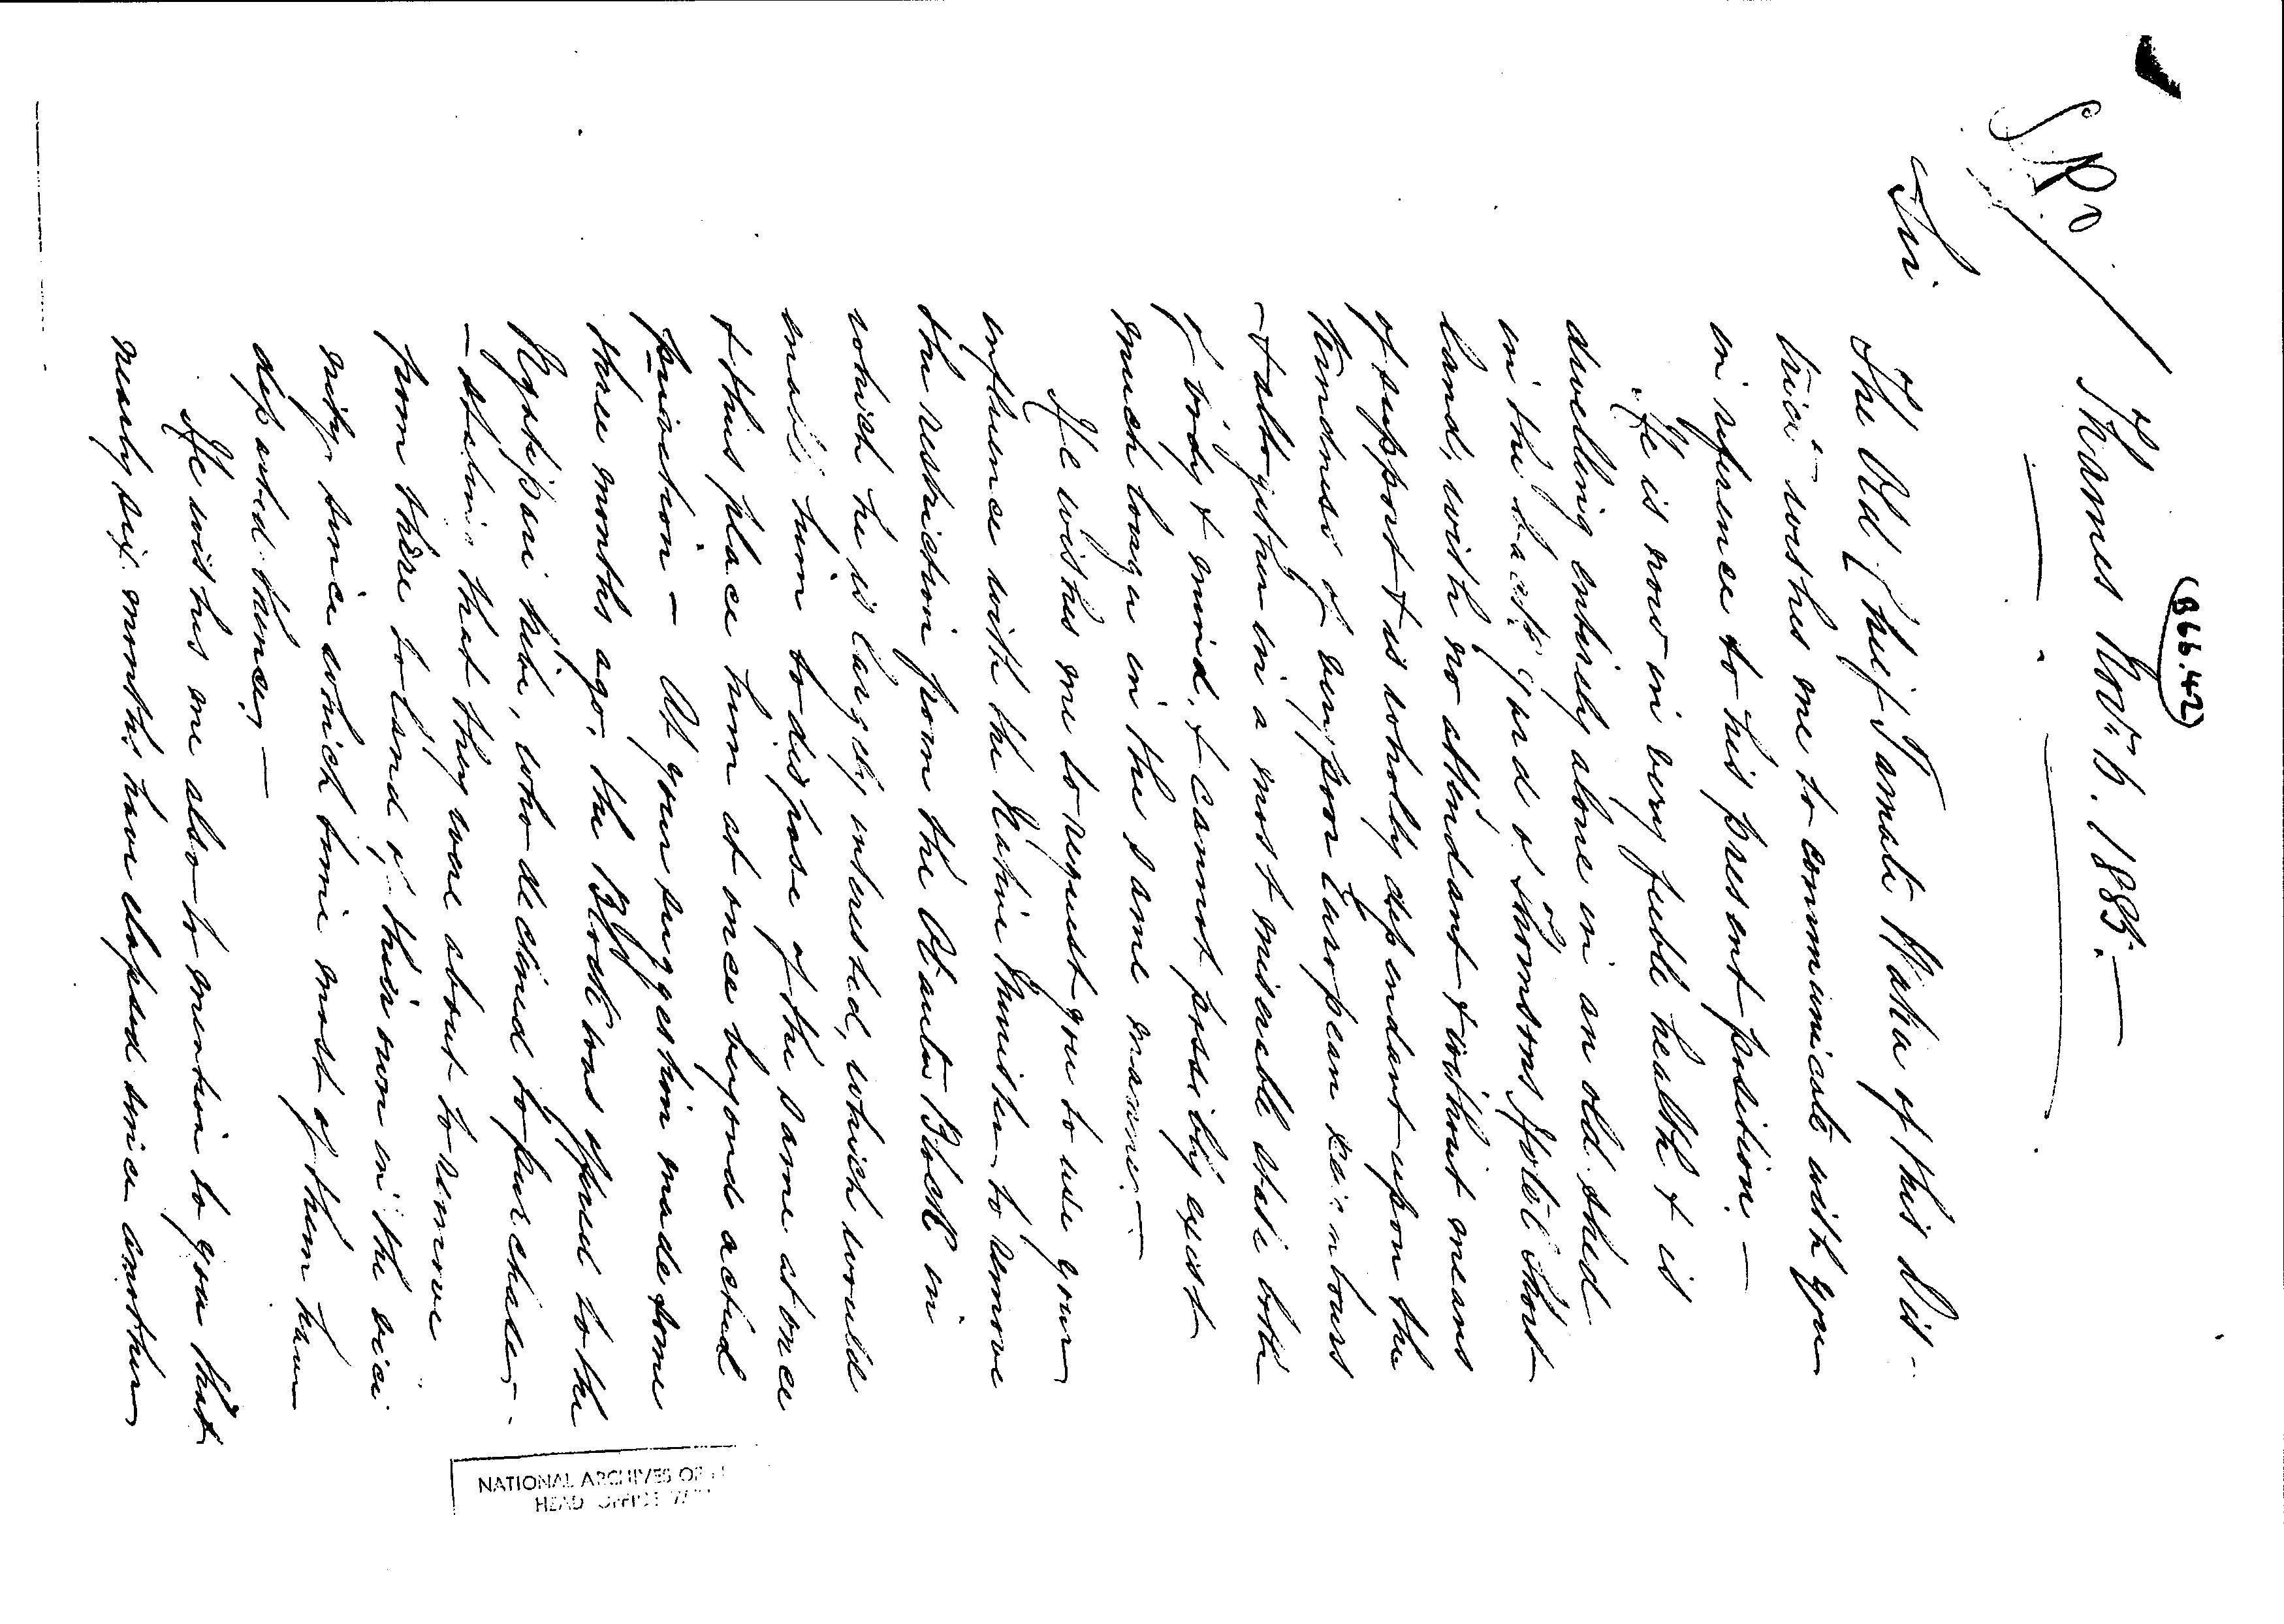 (866.42)
Thames Nov. 6. 1885.—
Sir
The Old Chief Tamati Waka of this Dis-
trict wishes me to communicate with you
in reference to his present position.—
He is now in very feeble health & is
dwelling entirely alone in an old shed
in the back yard of Thomsons Hotel Short-
land, with no attendant & without means
of support & is wholly dependant upon the
kindness of very poor European neighbours
- & altogether in a most miserable state both
of body & mind, & cannot possibly exist
much longer in the same manner.—
He wishes me to request you to use your
influence with the Native Minister to remove
the restriction from the Block in
which he is largely interested, which would
enable him to dispose of the same at once
& thus place him at once beyond actual
privation — At your suggestion made some
three months ago, the Block was offered to the
Ngatipari tribe, who declined to purchase,-
- stating that they were about to remove
from there to land of their own in the vici
nity since which time most of them have
departed thence,—
He wishes me also to mention to you that
nearly six months have elapsed since another
NATIONAL ARCHIVES OF
HEAD OFFICE